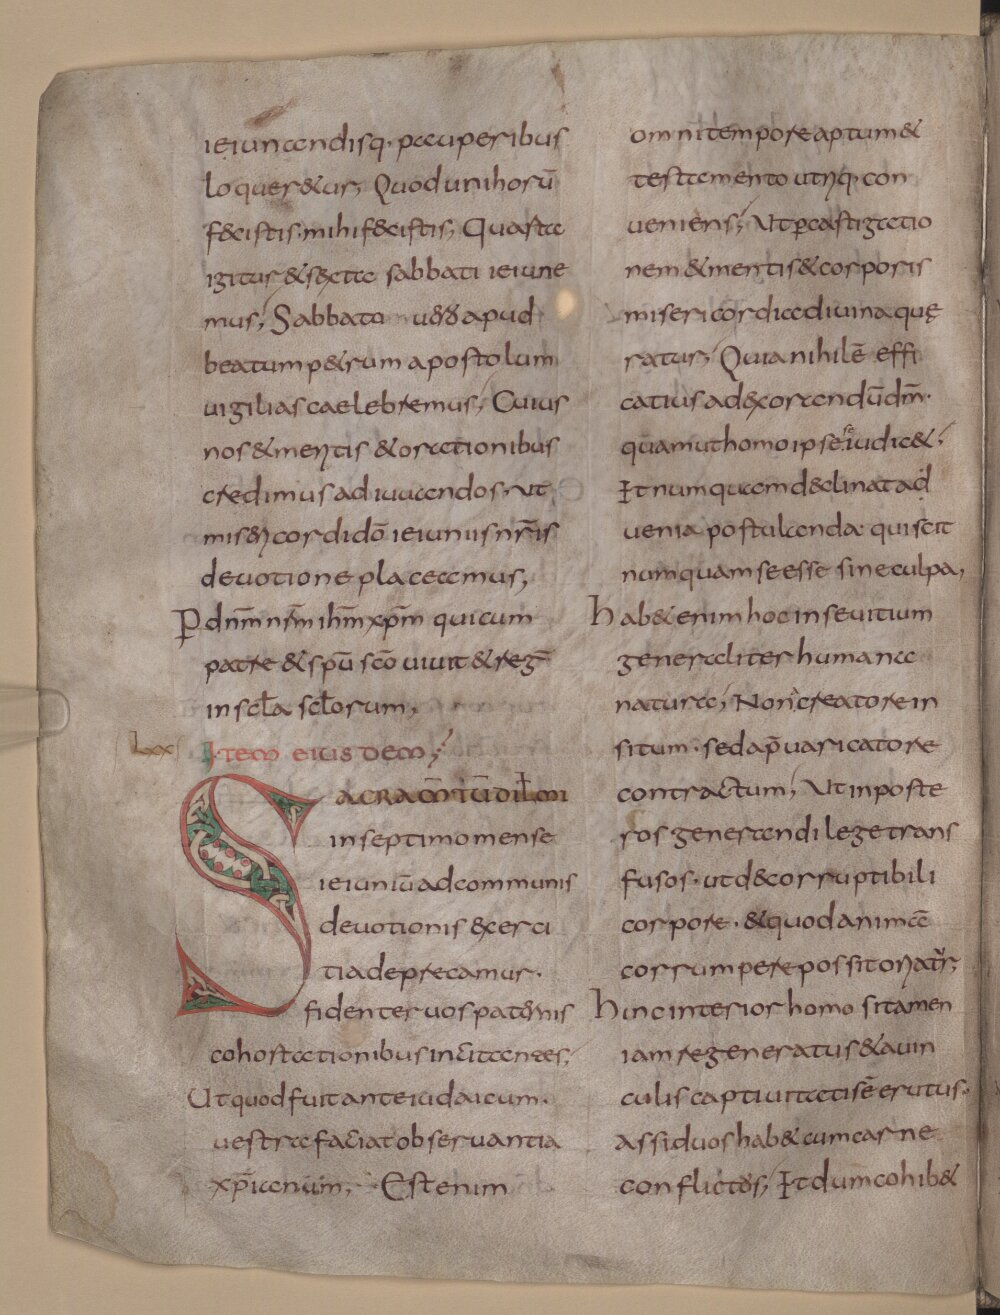 ieiunandisq· pauperibus
loqueretur; Quod uni horū
fecistis· mihi fecistis; Quarta
igitur & sexta sabbati ieiune
mus; Sabbato uero apud
beatum petrum apostolum
uigilias caelebremus; Cuius
nos & meritis & orationibus
credimus adiuuandos· ut
misericordi dō ieiuniis nr̄is
deuotione placeamus;
P dn̄m nr̄m ihm̄ xpm̄ qui cum
patre & spū scō uiuit & regn̄
in scl̄a scl̄orum;
Lxxi Item eiusdem;
Sacratū dil̄mi
in septimo mense
ieiuniū ad communis
deuotionis exerci
tia depraecamur·
fidenter uos paternis
cohortationibus incitantes;
Ut quod fuit ante iudaicum·
uestra faciat obseruantia
xpīanum; Est enim
omni tempore aptum &
testamento utriq· con
ueniens; Ut p castigatio
nem & mentis & corporis
misericordia diuina quę
ratur; Quia nihil ē effi
catius ad exorandū dm̄·
quam ut homo ipse se iudic&;
Et numquam declinat ad
uenia postulanda· qui scit
numquam se esse sine culpa,
Hab& enim hoc in se uitium
generaliter humana
natura; Non creatore in
situm· sed a p̄uaricatore
contractum; Ut in poste
ros generandi lege trans
fusos· ut de corruptibili
corpore· & quod animā
corrumpere possit oriatur;
Hinc interior homo sit amen
iam regeneratus & a uin
culis captiuitatis ē erutus·
assiduos hab& cum carne
conflictus; Et dum cohib&